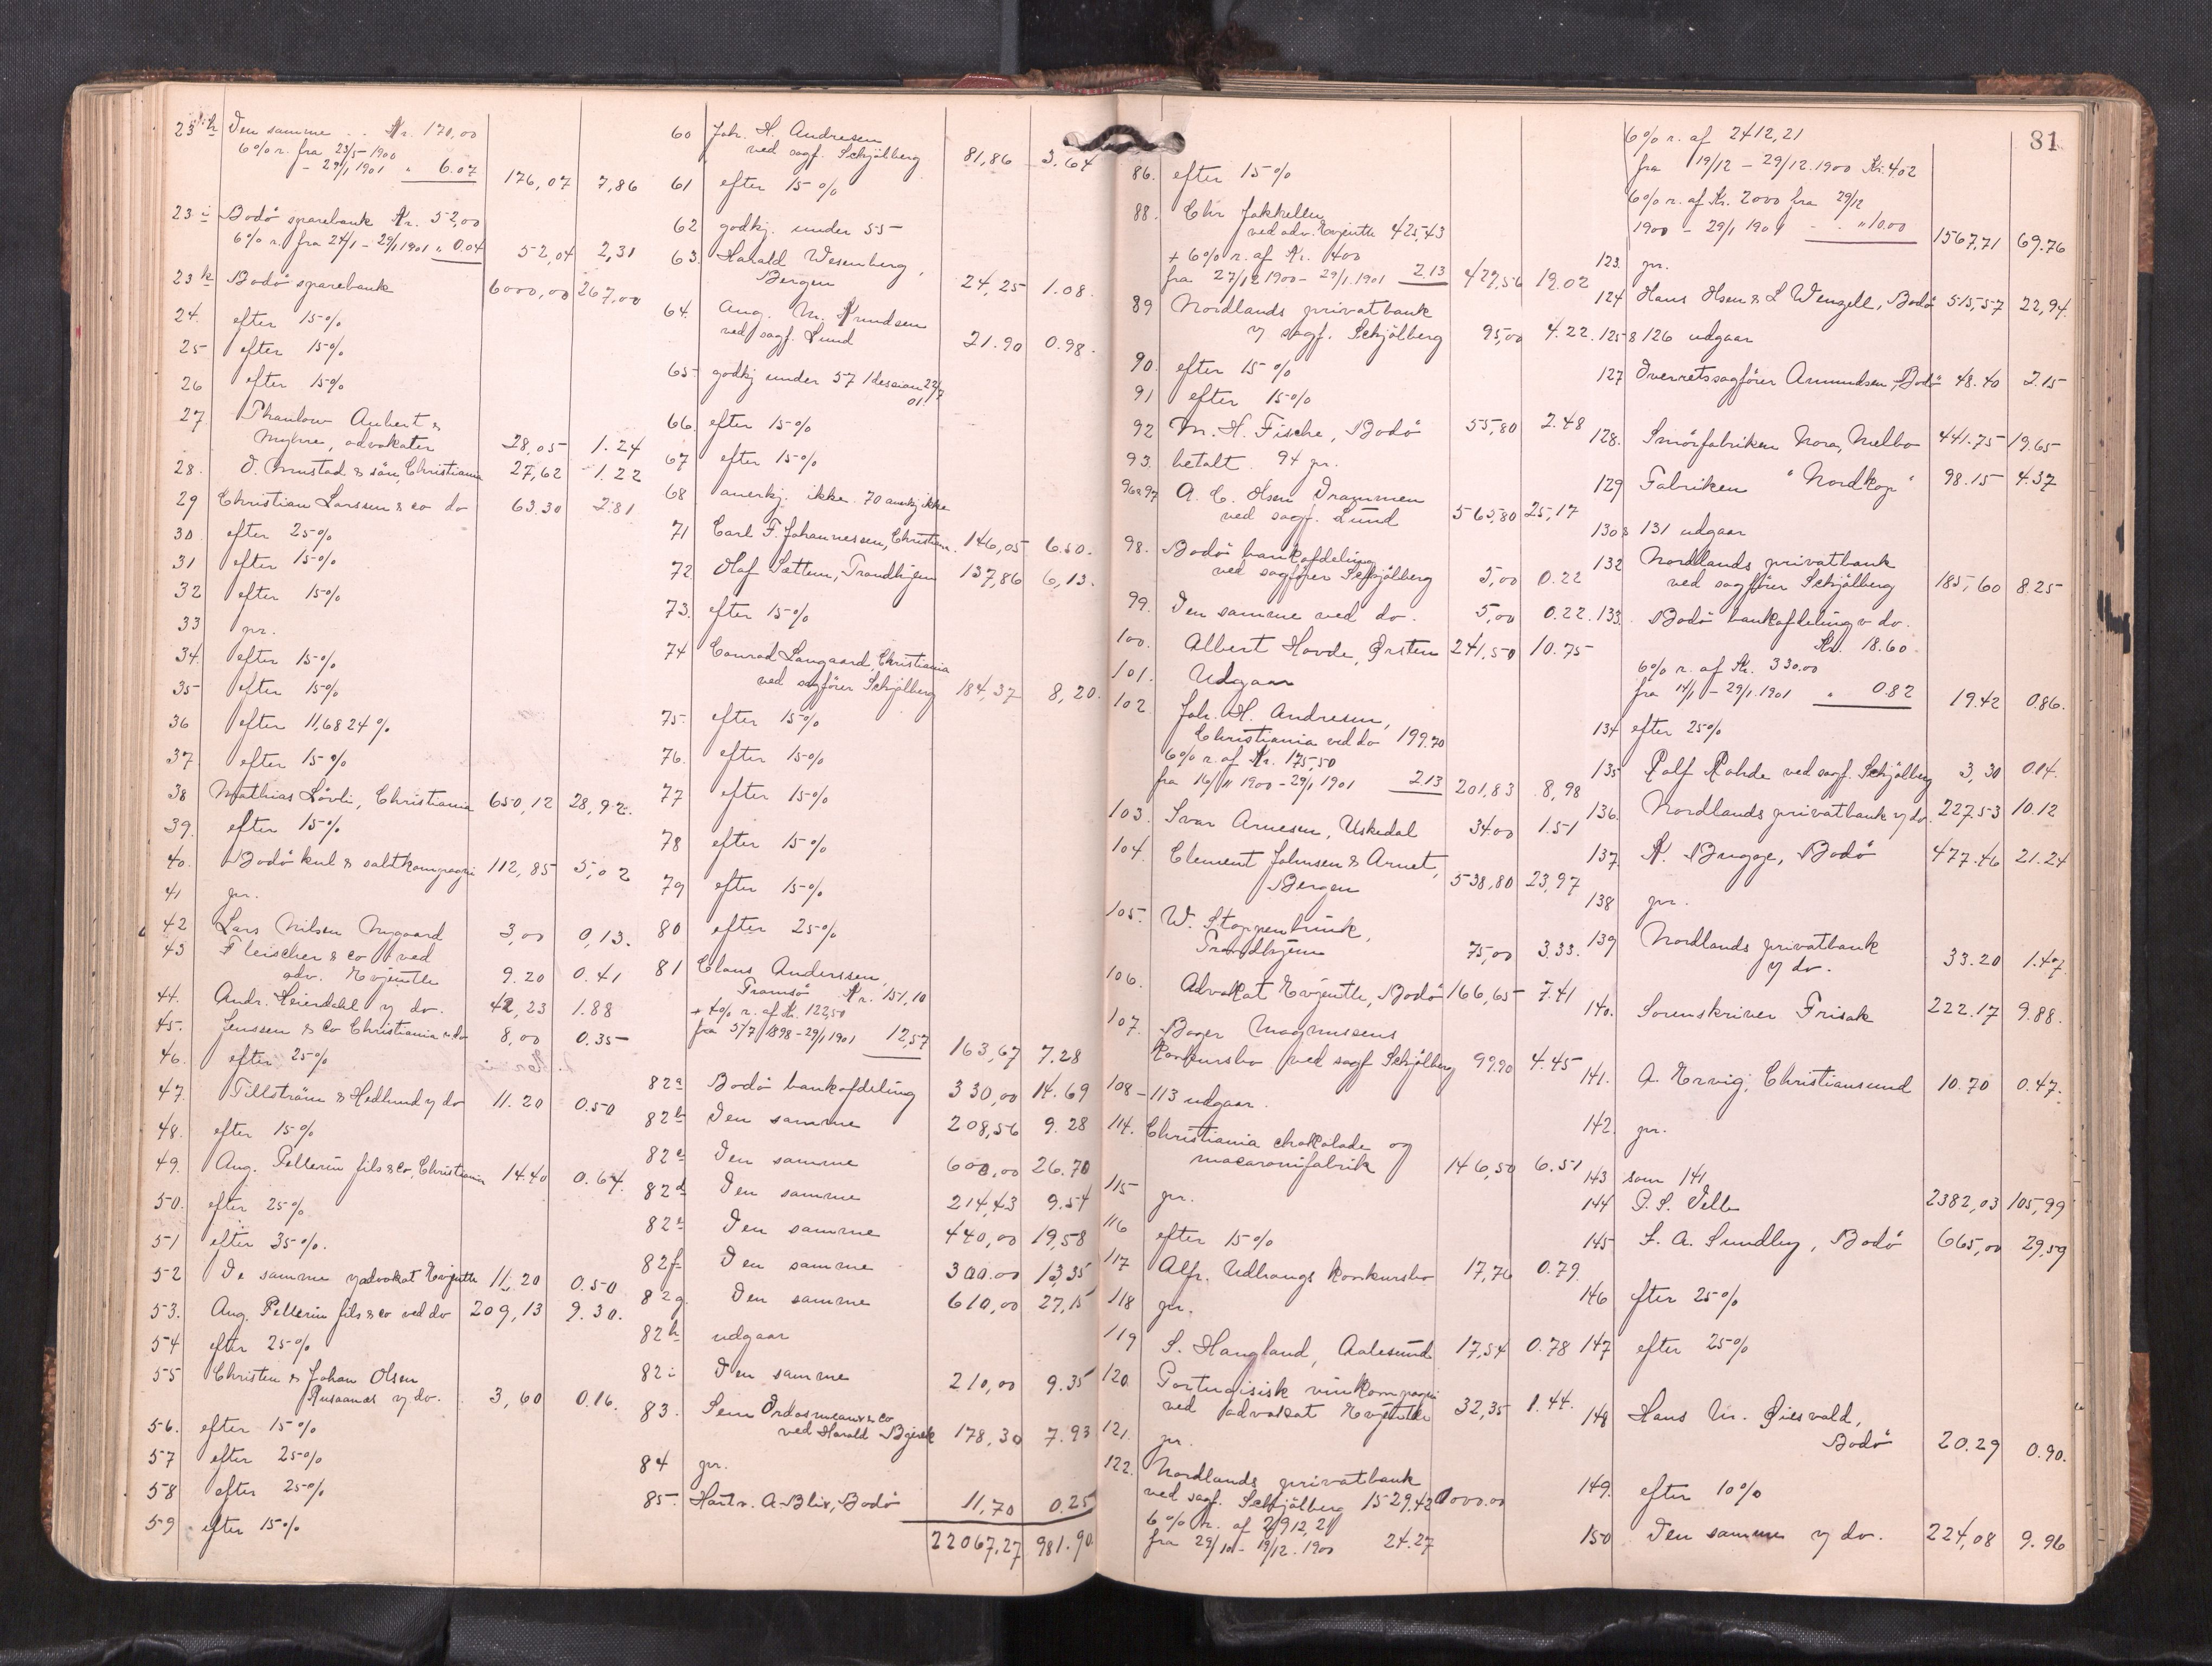 23 h Den samme . . Kr. 170,00
6% r. fra 23/5 1900
- 29/1 1901 " 6.07 176,07 7,86
23 i Bodø sparebank Kr. 52,00
6% r. fra 24/1 - 29/1 1901 " 0.04 52,04 2,31
23 k Bodø sparebank 6000,00 267,00
24. efter 15%
25 efter 15%
26 efter 15%
27 Thaulow Aubert &
Myhre, advokater 28,05 1.24
28. O. Mustad & søn, Christiania 27,62 1.22
29 Christian Larssen & co do 63.30 2.81
30. efter 25%
31 efter 15%
32 efter 15%
33 pr.
34. efter 15%
35 efter 15%
36 efter 11,6824%
37 efter 15%
38 Mathias Løvli, Christiania 650,12 28,92.
39. efter 15%
40. Bodø kul & saltkompagni 112,85 5,02
41 pr.
42 Lars Nilsen Nygaard 3,00 0,13.
43 Fleischer & co ved
adv. Evjenth 9.20 0.41
44. Andr. Heierdahl v do. 42,23 1.88
45. Jenssen & Co Christiania v do 8,00 0.35
46. efter 25%
47. Tillström & Hedlund v do 11.20 0.50
48. efter 15%
49. Aug. Pellerin fils & co, Christiania 14.40 0.64.
50. efter 25%
51 efter 35%.
52 De samme v advokat Evjenth 11,20 0.50
53. Aug. Pellerin fils & co ved do 209,13 9.30.
54 efter 25%
55 Christen & Johan Olsen
Rusaanæs v do. 3,60 0.16.
56. efter 15%
57 efter 25%
58 efter 25%
59 efter 15%
60 Joh. H. Andresen
ved sagf. Schjölberg 81,86 3.64
61 efter 15%
62 godkj. under 55
63. Harald Wesenberg,
Bergen 24,25 1.08.
64. Aug. M. Knudsen
ved sagf. Lund 21.90 0.98.
65 godkj under 57 / dession 22/7
01.
66. efter 15%
67 efter 15%
68 anerkj. ikke. 70 anerkj ikke
71 Carl F. Johannessen, Christiania. 146,05 6.50.
72 Olaf Sættem, Trondhjem 137,86 6,13.
73. efter 15%
74 Conrad Langaard, Christiania
ved sagfører Schjölberg 184,37 8,20.
75. efter 15%
76. efter 15%
77 efter 15%
78 efter 15%
79 efter 15%
80 efter 25%
81 Claus Anderssen,
Tromsø Kr. 151,10
+ 4% r. af Kr. 122,50
fra 5/7 1898 - 29/1 1901 12,57 163,67 7.28
82 a Bodø bankafdeling 330,00 14.69
82 b Den samme 208,56 9.28
82 c Den samme 600,00 26.70
82 d Den samme 214,43 9.54
82 e Den samme 440,00 19,58
82 f Den samme 300.00 13,35
82 g. Den samme 610,00 27,15
82 h udgaar
82 i Den samme 210,00 9.35
83. Sem & co
ved Harald 178,30 7.93
84 pr.
85. Hartv. A. Blix, Bodø 11,70 0.25
22067,27 981.90
81
86. efter 15%
88. Chr Jakhelln
ved adv. Evjenth 425,43
+ 6% r. af Kr. 1400
fra 27/12 1900 - 29/1 1901 2.13 427,56 19.02
89 Nordlands privatbank
v sagf. Schjölberg 95,00 4.22.
90. efter 15%
91 efter 15%
92 M. H. Fische, Bodø 55,80 2.48
93. betalt. 94 pr.
96 & 97 A. C. Olsen Drammen
ved sagf. Lund 565,80 25,17
98. Bodø bankafdeling
ved sagfører Schjölberg 5,00 0.22
99. Den samme ved do. 5,00 0.22.
100. Albert Hovde, Ørsten 241,50 10.75
101. Udgaar
102. Joh. H. Andresen,
Christiania ved do 199.70
6% r. af Kr. 175,50
fra 16/11 1900 - 29/1 1901 2.13 201,83 8,98
103. Ivar Arnesen, Uskedal 34.00 1.51
104. Clement Johnsen & Arnet,
Bergen 538,80 23,97
105. W. Stoppenbrink,
Trondhjem 75,00 3.33.
106. Advokat Evjenth, Bodø 166,65 7.41
107. Bager Magnussens
konkursbo ved sagf Schjölberg 99.90 4.45
108 - 113 udgaar.
114. Christiania chokolade og
macaronifabrik 146,50 6.51
115 pr.
116 efter 15%
117 Alfr. Udbangs konkursbo 17,76 0.79
118 pr.
119 S. Haugland, Aalesund 17,54 0.78
120. Portugisisk vinkompagni
ved advokat Evjenth 32,35 1.44.
121. pr.
122. Nordlands privatbank
ved sagf. Schjölberg 1529,42 1000.00
6% r. af 2912,21
fra 29/10 - 19/12. 1900 24.27
6% r. af 2412,21
fra 19/12 - 29/12. 1900 Kr. 4.02
6% r. af Kr. 2000 fra 29/12
1900 - 29/1 1901 - . " 10.00 1567,71 69.76
123. pr.
124 Hans Olsen & L Wenzell, Bodø 515,57 22,94.
125 & 126 udgaar
127 Overretssagfører Amundsen, Bodø 48.40 2.15
128. Smørfabriken Nora, Melbo 441.75 19.65
129 Fabriken "Nordkap" 98.15 4.37
130 & 131 udgaar
132 Nordlands privatbank
ved sagfører Schjölberg 185,60 8.25
133. Bodø bankafdeling v do.
Kr. 18.60
6% r. af Kr. 330.00
fra 14/1 - 29/1. 1901 " 0.82 19.42 0.86.
134 efter 25%
135 Rolf Rohde ved sagf. Schjölberg 3,30 0.14.
136. Nordlands privatbank v do. 227.53 10.12
137. K. Brugge, Bodø 477.46 21.24
138 pr.
139 Nordlands privatbank
v do. 33.20 1.47.
140. Sorenskriver Frisak 222.17 9.88.
141. A. Ervig, Christiansund 10.70 0.47.
142. pr.
143 som 141
144 P. S. Vell 2382,03 105,99
145 L. A. Sundby, Bodø 665,00 29,59
146 efter 25%
147 efter 25%
148 Hans M. Giesvald,
Bodø 20.29 0.90.
149. efter 10%
150 Den samme v do. 224,08 9.96